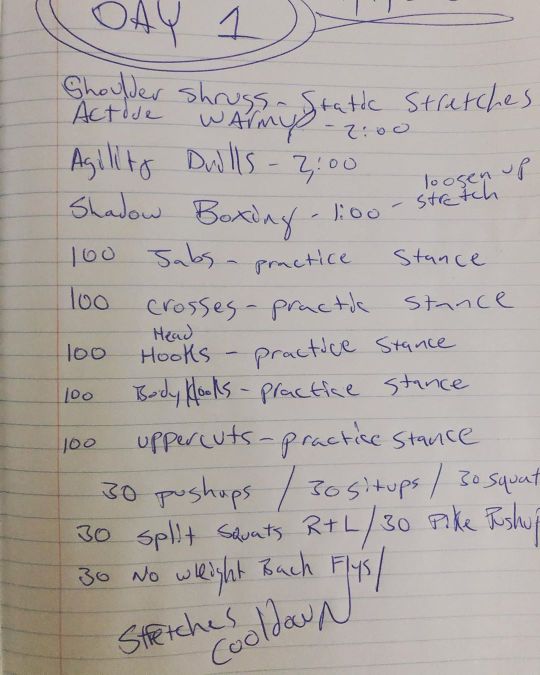 DAY 1
Shoulder Shrugs - Static Stretches
Active Warmup - 2:00
Agility Drills - 2:00
Shadow Boxing - 1:00 - loosen up stretch
100 Jabs - practice Stance
100 crosses - practic stance
100 Head Hooks - practice stance
100 Body Hooks - practice stance
100 uppercuts - practice stance
30 pushups / 30 situps / 30 squat
30 split squats R+L / 30 Pike Pushup
30 No weight Back Flys /
Stretches
cooldown